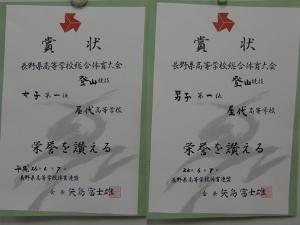 賞状
長野県高等学校総合体育大会
登山競技
女子第一位
屋代高等学校
栄誉を讃える
平成26.6.7
長野県高等学校体育連盟
会長 矢島富士雄
賞状
長野県高等学校総合体育大会
登山競技
男子第一位
屋代高等学校
栄誉を讃える
26.6.7
長野県高等学校体育連盟
会長 矢島富士雄